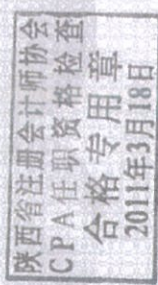 陕西省注册会计师协会
CPA任职资格检查
合格专用章
2011年3月18日